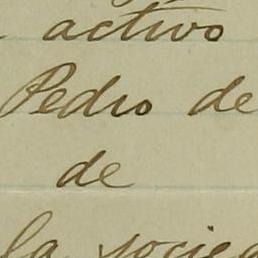 activo
Pedro de
de
la socied